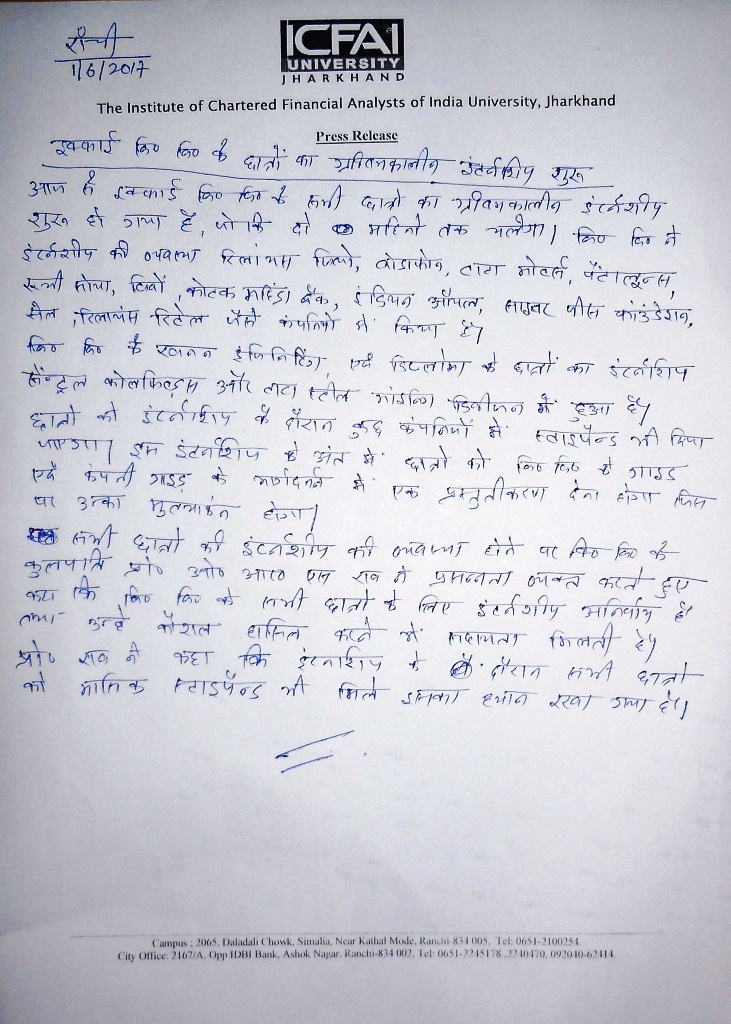 राँची
1/6/2017
ICFAI
UNIVERSITY
JHARKHAND
The Institute of Chartered Financial Analysts of India University, Jharkhand
Press Release
इक्फाई वि० वि० के छात्रों का ग्रीष्मकालीन इंटर्नशिप शुरू
आज से इक्फाई वि० वि० के सभी छात्रों का ग्रीष्मकालीन इंटर्नशीप
शुरू हो गया है, जो कि दो महिनों तक चलेगा। वि० वि० ने
इंटर्नशीप की व्यवस्था रिलांयस जियो, वोडाफोन, टाटा मोटर्स, पैंटालून्स,
सोया, कोटक महिंद्रा बैंक, इंडियन ऑयल, साइबर पीस फाउंडेशन,
सैल, रिलायंस रिटेल जैसे कंपनियों में किया है।
वि० वि० के खनन इंजिनियरिंग एवं डिप्लोमा के छात्रों का इंटर्नशिप
सेन्ट्रल कोलफिल्ड्स और टाटा स्टील माइनिंग डिवीजन में हुआ है।
छात्रों को इंटर्नशिप के दौरान कुछ कंपनियों में स्टाइपेन्ड भी दिया
जाएगा। इस इंटर्नशिप के अंत में छात्रों को वि० वि० के गाइड
एवं कंपनी गाइड के मार्गदर्शन में एक प्रस्तुतीकरण देना होगा जिस
पर उनका मुल्यांकन होगा।
सभी छात्रों की इंटर्नशीप की व्यवस्था होने पर वि० वि० के
कुलपति प्रो० ओ० आर० एस राव ने प्रसन्नता व्यक्त करते हुए
कहा कि वि० वि० के सभी छात्रों के लिए इंटर्नशीप अनिर्वाय है
तथा उन्हे कौशल हासिल करने में सहायता मिलती है।
प्रो० राव ने कहा कि इंटर्नशिप के दौरान सभी छात्रों
को मासिक स्टाइपेन्ड भी मिले इसका ध्यान रखा गया है।
Campus : 2065, Daladali Chowk, Simalia, Near Kathal Mode, Ranchi-834 005, Tel: 0651-2100254
City Office: 2167/A, Opp IDBI Bank, Ashok Nagar, Ranchi-834 002, Tel: 0651-2245178 ,2240470, 092040-62414